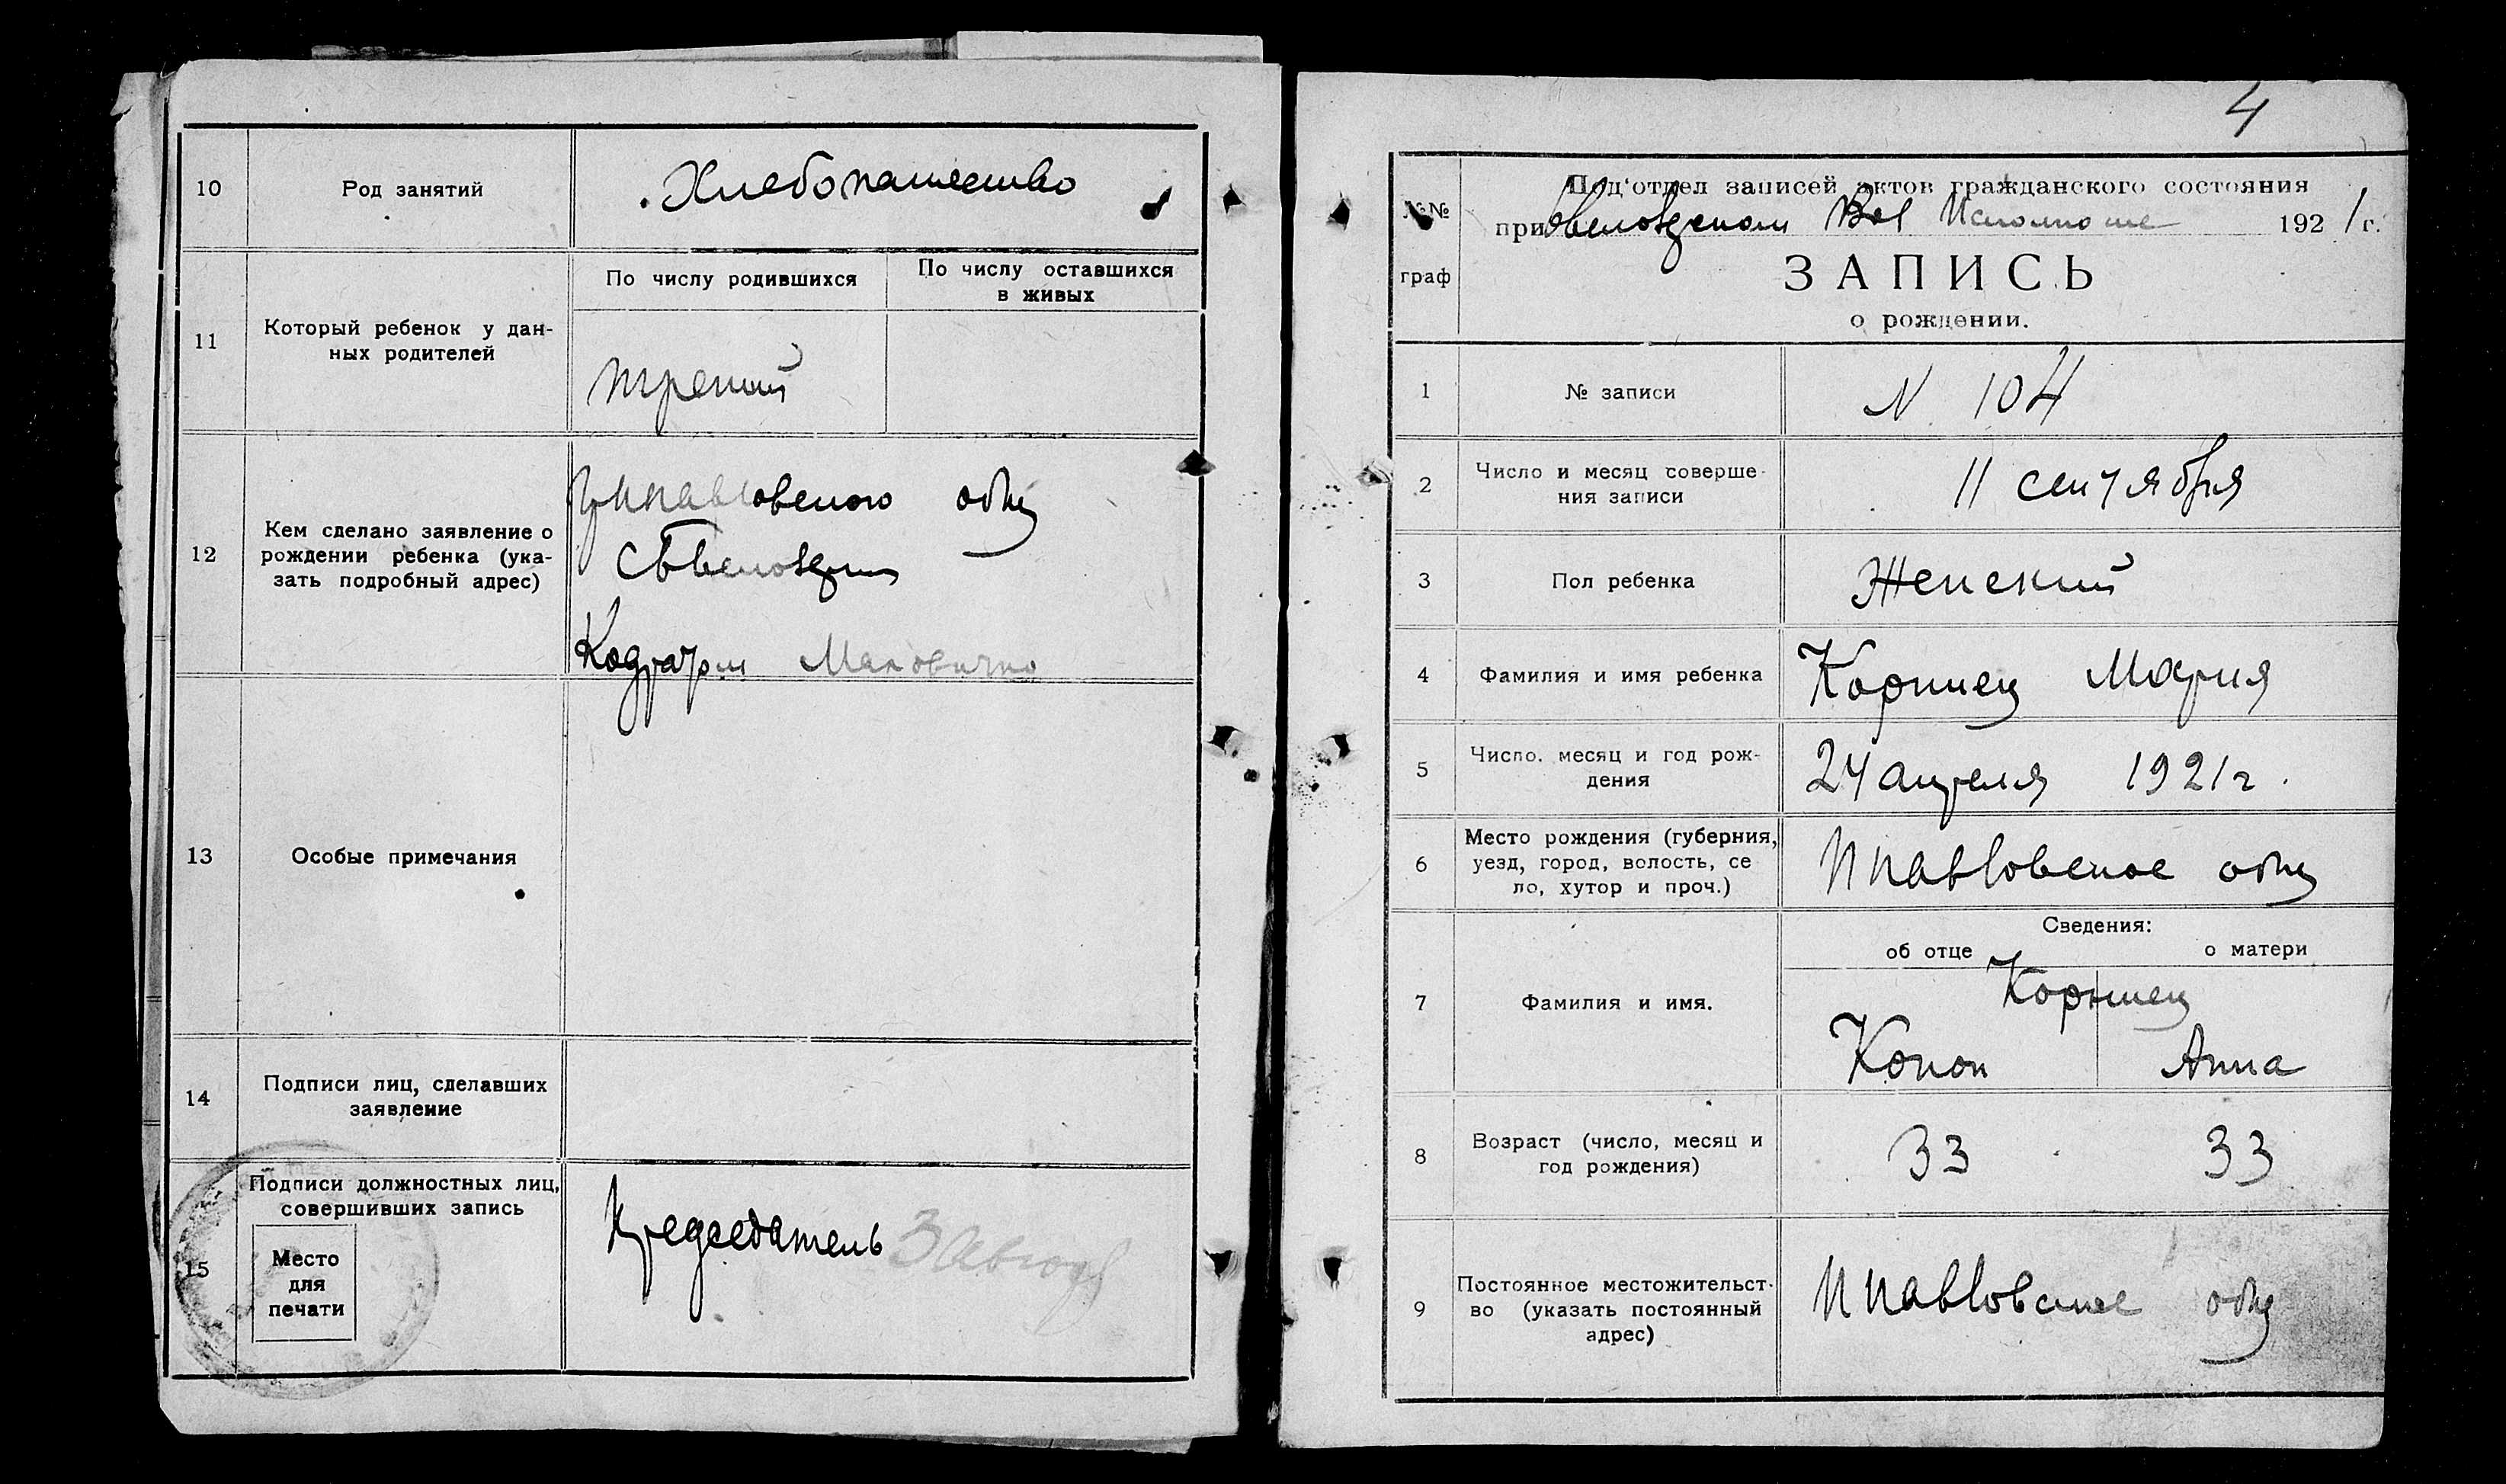 10
Род занятий
Хлебопашество
11
Который ребенок у дан-
ных родителей
По числу родившихся
По числу оставшихся
в живых
третий
12
Кем сделано заявление о
рождении ребенка (ука-
зать подробный адрес)
общ
13
Особые примечания
14
Подписи лиц, сделавших
заявление
15
Подписи должностных лиц,
совершивших запись
Место
для
печати
Председатель
4
№№
граф
Под'отдел записей актов гражданского состояния
при Вол Исполкоме 1921 г.
ЗАПИСЬ
о рождении.
1
№ записи
N 104
2
Число и месяц соверше-
ния записи
11 сентября
3
Пол ребенка
Женский
4
Фамилия и имя ребенка
Мария
5
Число, месяц и год рож-
дения
24 апреля 1921 г.
6
Место рождения (губерния,
уезд, город, волость, се
ло, хутор и проч.)
общ
Сведения:
об отце
о матери
7
Фамилия и имя.
Конон
Анна
8
Возраст (число, месяц и
год рождения)
33
33
9
Постоянное местожительст-
во (указать постоянный
адрес)
общ